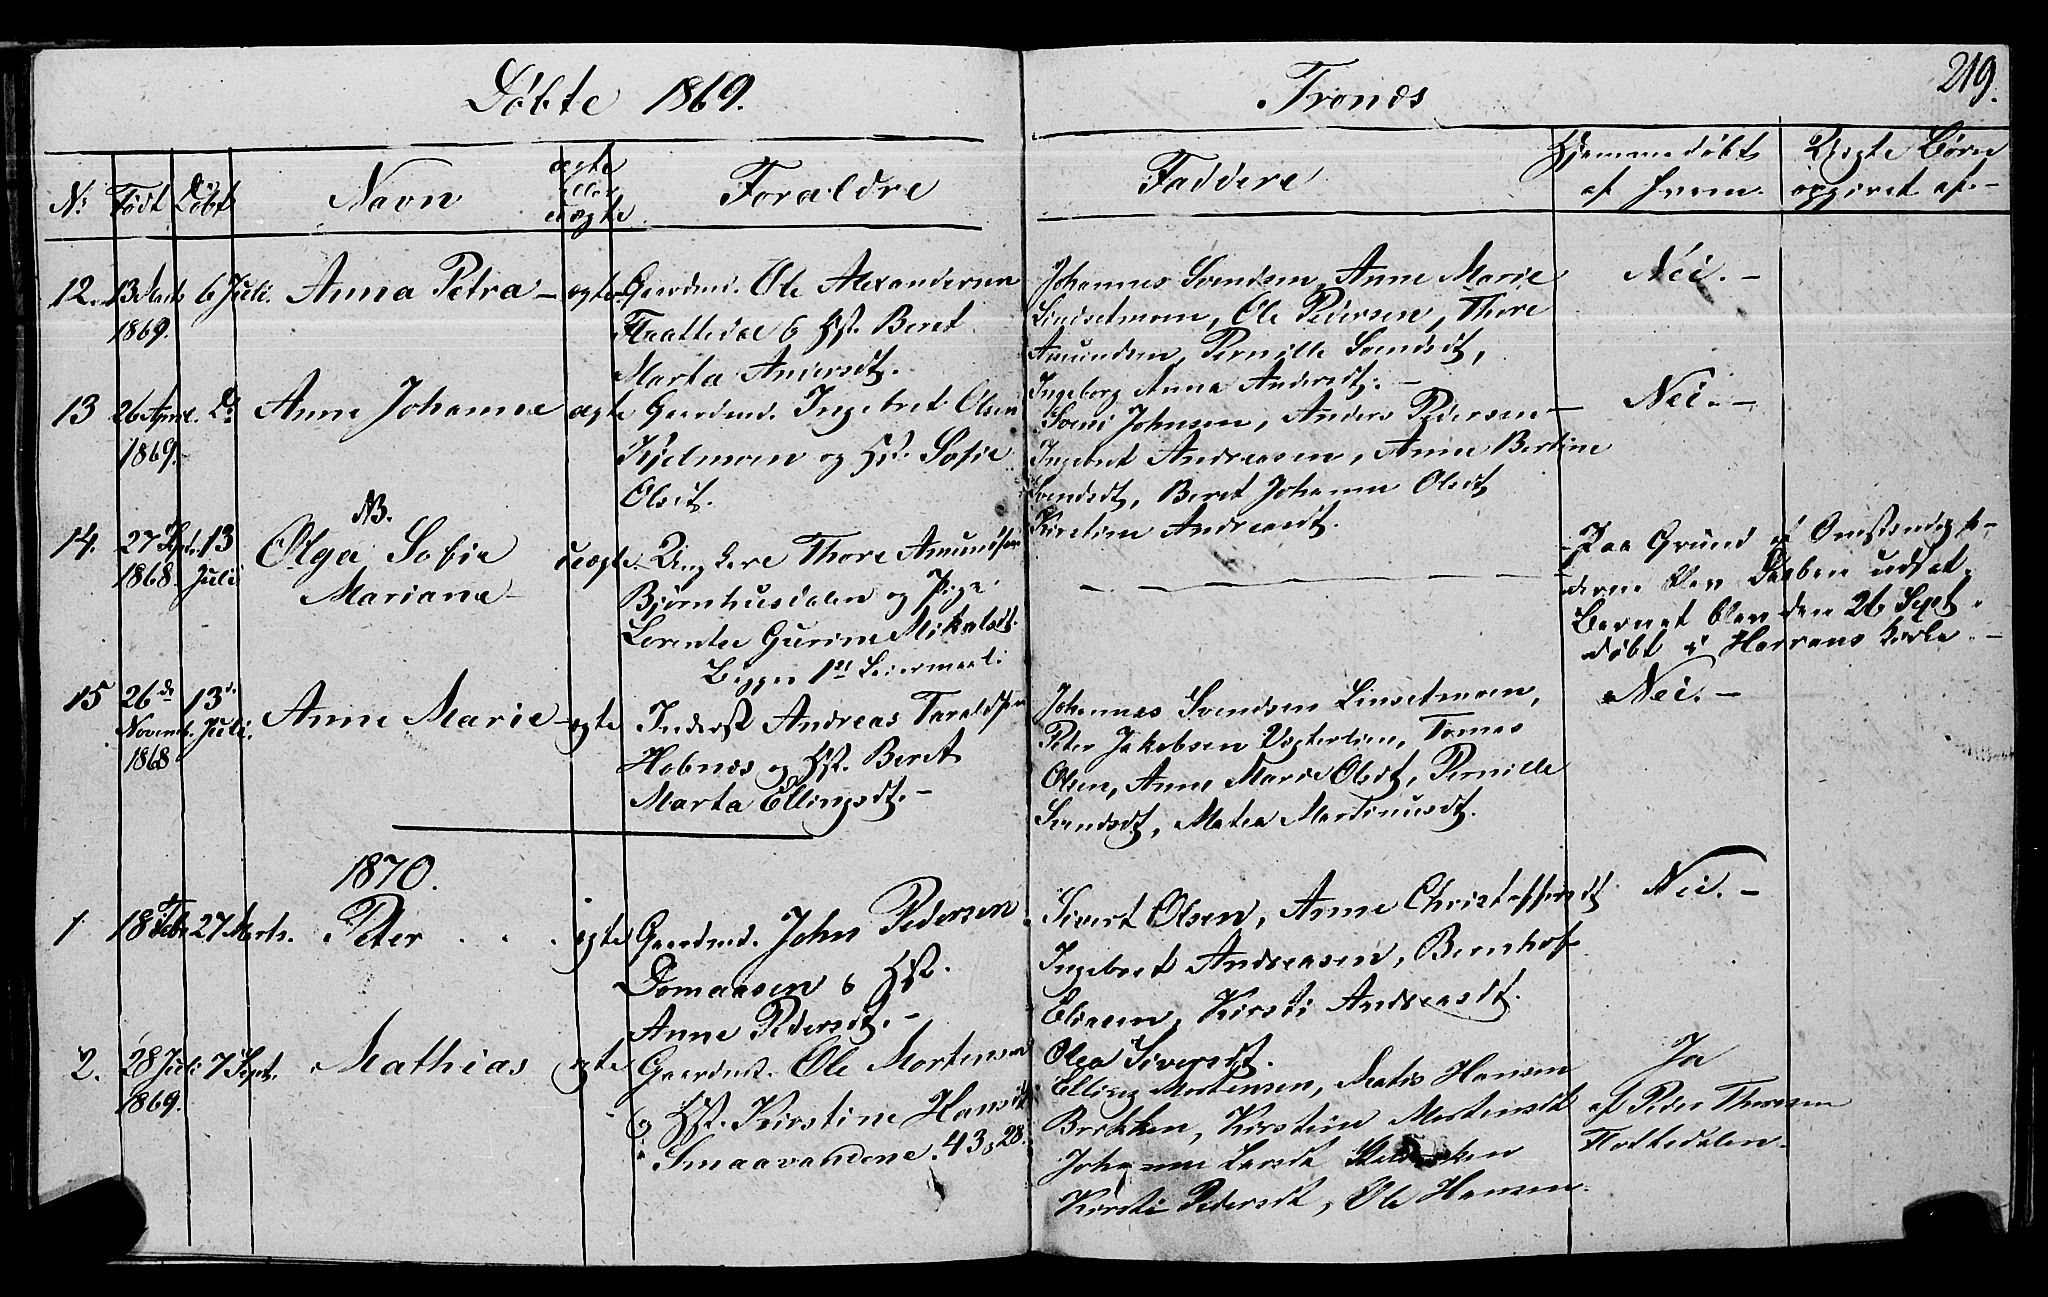 Døbte 1869.
Trones
219.
No Født Døbt Navn ægte eller uægte Forældre
Faddere Hjemmedøbt af hvem. Uægte Børn opgivet af.
12. 13 Marts 1869. 6 Juli. Anna Petra ægte Gaardmd. Ole Alexandersen
Flaattedal & Hst. Beret
Marta Andersdt.
Johannes Svendsen, Anne Marie
Lindsetmoen, Ole Pedersen, Thore
Amundsen, Pernille Svendsdt,
Ingeborg Anna Andersdt.
Nei.
13 26 April 1869. Do Anne Johanna ægte Gaardmd. Ingebret Olsen
Kjelmoen og Hst. Sofie
Olsdt.
Sveni Johnsen, Anders Pedersen
Ingebret Andreasen, Anne Bertine
Svendsdt, Beret Johanna Olsdt
Kirstine Andreasdt.
Nei.
NB.
14. 27 Sept. 1868. 13 Juli Olga Sofie
Mariane
uægte Ungkere Thore Amundsen
Bjørnhusdalen og Pige
Lorentse Gurine Mikalsdt.
Begges 1st Leiermaal
Paa Grund af Omstendighe-
derne blev Daaben udsat.
Barnet blev den 26 Sept.
døbt i Harrans Kirke.
15 26de Novemb. 1868 13de Juli. Anne Marie ægte Inderst Andreas Taraldsen
Hobnes og Hst. Beret
Marta Ellingsdt.
Johannes Svendsen Linsetmoen,
Peter Jakobsen Vegterlien, Tomas
Olsen, Anne Marie Olsdt, Pernille
Svendsdt, Matea Martinusdt.
Nei.
1870.
1 18 Febr 27 Marts. Peter ægte Gaardmd. John Pedersen
Domaasen & Hst.
Anne Pedersdt.
Sivert Olsen, Anne Christoffersdt
Ingebret Andreasen, Bernhof
Eliasen, Kirsti Andreasdt.
Olea Siversdt.
Nei.
2. 28 Juli 1869. 7 Sept. Mathias ægte Gaardmd. Ole Mortensen
og Hst. Kirstine Hansdt
Smaavandene. 43, 28.
Elling Mortensen, Matis Hansen
Brekken, Kirstine Mortensdt
Johanna Larsdt
Kirsti Pedersdt, Ole Hansen.
Ja
af Peder Thoresen
Flottedalen